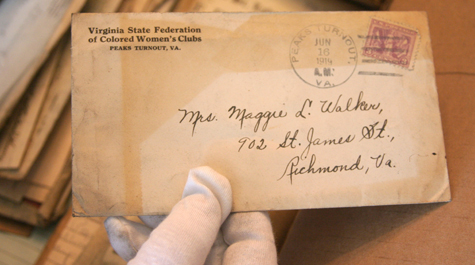 Virginia State Federation
of Colored Women's Clubs
PEAKS TURNOUT, VA.
PEAKS TURNOUT.
JUN
16
A.M.
VA.
Mrs. Maggie L. Walker,
902 St. James St.,
Richmond, Va.